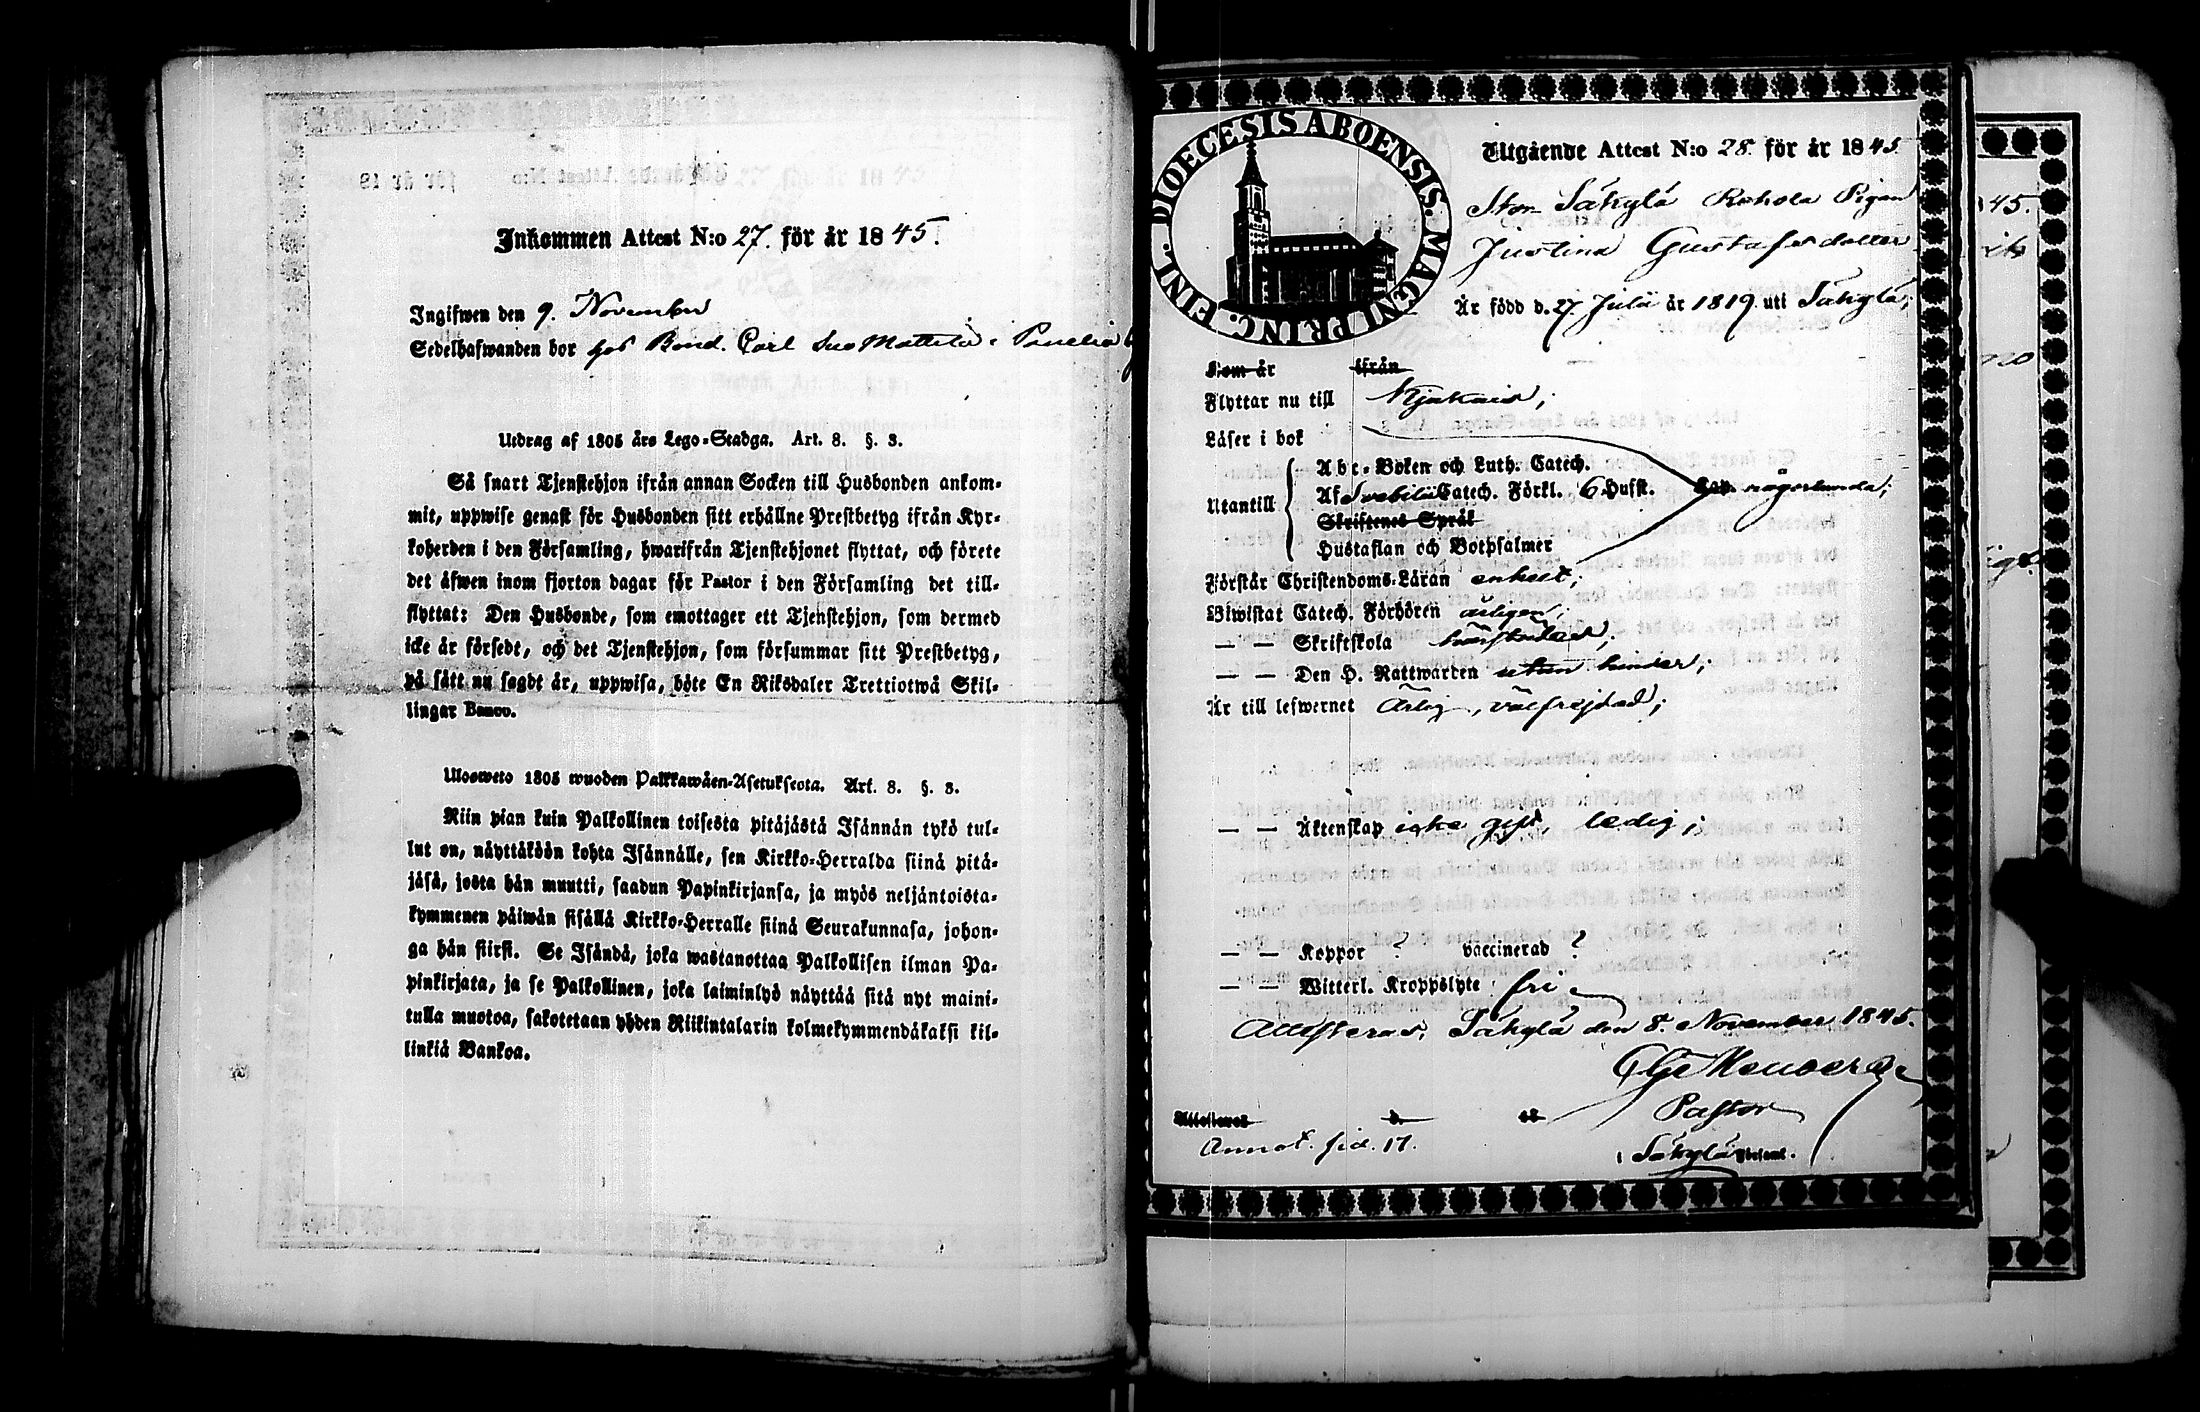 Inkommen Attest N:o 27. för år 1845.
Ingifwen den 9. November
Sedelhafwanden bor hos Bond. Carl Suo Mattila i Panelia
Utdrag af 1805 års Lego-Stadga. Art. 8. §. 3.
Så snart Tjenstehjon ifrån annan Socken till Husbonden ankom-
mit, uppwise genast för Husbonden sitt erhållne Prestbetyg ifrån Kyr-
koherden i den Församling, hwarifrån Tjenstehjonet flyttat, och förete
det äfwen inom fjorton dagar för Pastor i den Församling det till-
flyttat: Den Husbonde, som emottager ett Tjenstehjon, som dermed
icke är försedt, och det Tjenstehjon, som försummar sitt Prestbetyg,
på sätt nu sagdt är, uppwisa, böte En Riksdaler Trettiotwå Skil-
lingar Banco.
Ulosweto 1805 wuoden Palkkawäen-Asetuksesta. Art. 8. §. 3.
Niin pian kuin Palkollinen toisesta pitäjästä Isännän tykö tul-
lut on, näyttäköön kohta Isännälle, sen Kirkko-Herralda siinä pitä-
jäsä, josta hän muutti, saadun Papinkirjansa, ja myös neljäntoista-
kymmenen päiwän sisällä Kirkko-Herralle siinä Seurakunnasa, johon-
ga hän siirst. Se Isändä, joka wastanottaa Palkollisen ilman Pa-
pinkirjata, ja se Palkollinen, joka laiminlyö näyttää sitä nyt maini-
tulla muotoa, sakotetaan yhden Riikintalarin kolmekymmendäkaksi kil-
linkiä Bankoa.
DIOECESIS ABOENSIS. MAGNI PRINC. FINL.
Utgående Attest N:o 28. för år 1845.
Stor Säkylä Rehola Pigan
Justina Gustafsdotter
Är född d. 27 Julii år 1819. uti Säkylä;
Kom år ifrån
Flyttar nu till Kjukais;
Läser i bok
Utantill
Abc-Boken och Luth. Catech.
Af Svebilii Catech. Förkl. 6 Hufst. någorlunda;
Skriftenes Språk
Hustaflan och Bothpsalmer
Förstår Christendoms-Läran enkelt;
Biwistat Catech. Förhören årligen;
— — Skriftskola
— — Den H. Nattwarden utan hinder;
Är till lefwernet Ärlig, välfrejdad;
— — Äktenskap icke gift, ledig;
— — Koppor ? vaccinerad ?
— — Witterl. Kroppslyte fri
Attesteras, Säkylä den 8. November 1845.
Pastor
Attesteras d. 18
Annot. sid. 17.
i Säkylä Församl.
45.